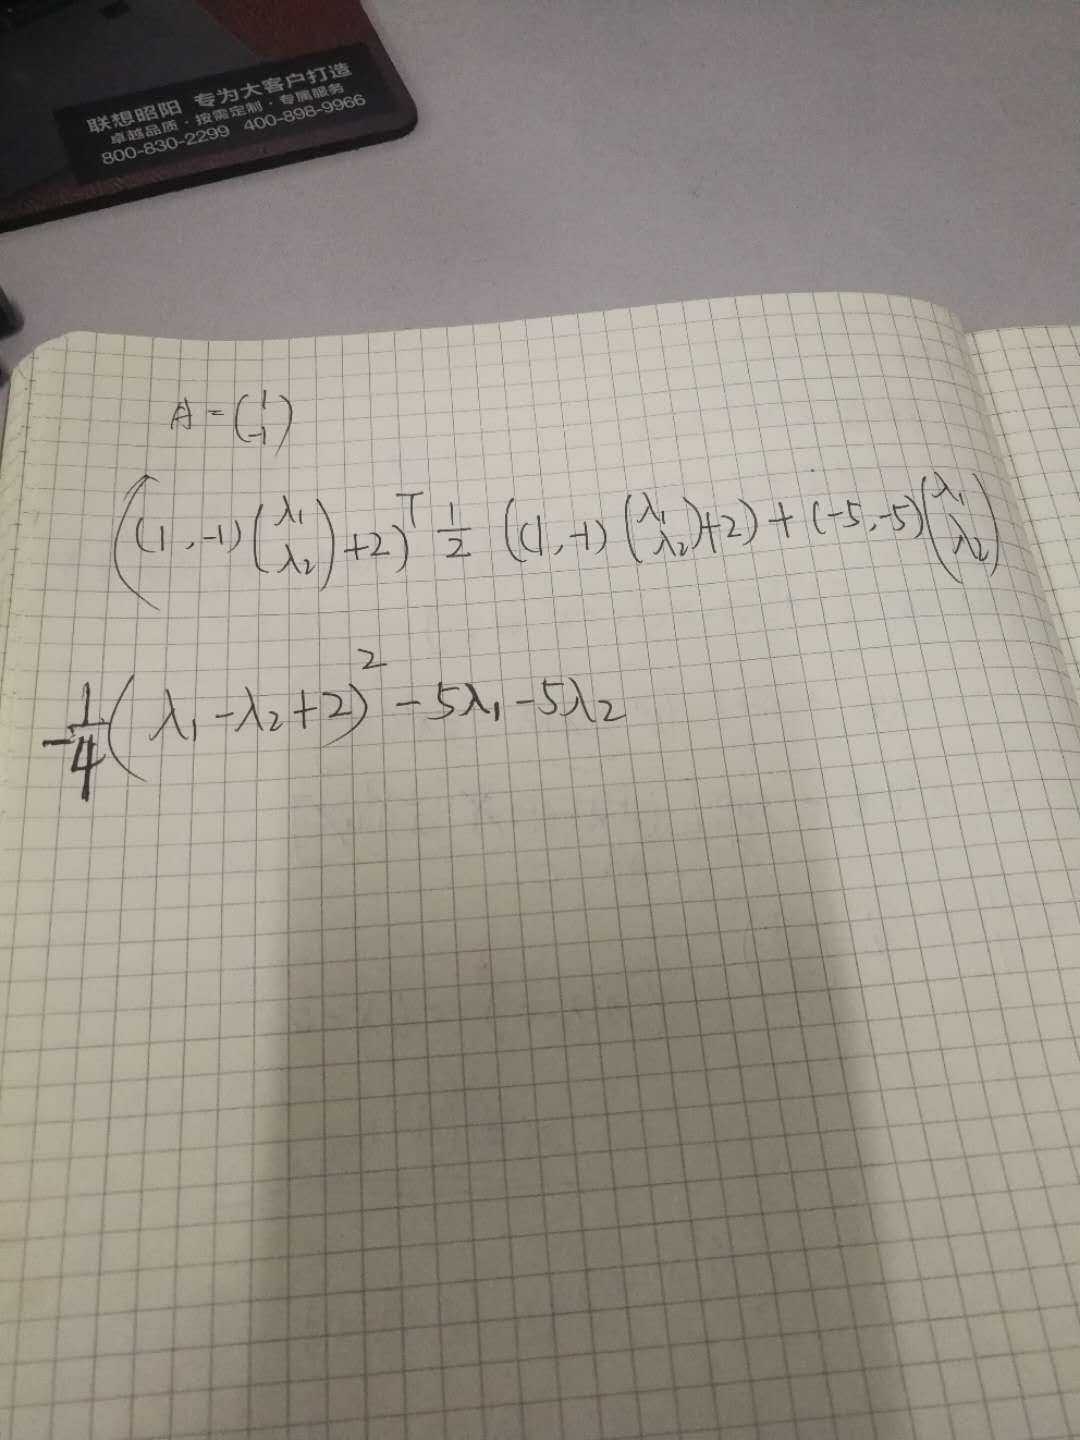 联想昭阳 专为大客户打造
卓越品质·按需定制·专属服务
800-830-2299 400-898-9966
A = (1 -1)
((1, -1)(λ₁ λ₂) + 2)ᵀ 1/2 ((1, -1)(λ₁ λ₂) + 2) + (-5, -5)(λ₁ λ₂)
-1/4 (λ₁ - λ₂ + 2)² - 5λ₁ - 5λ₂